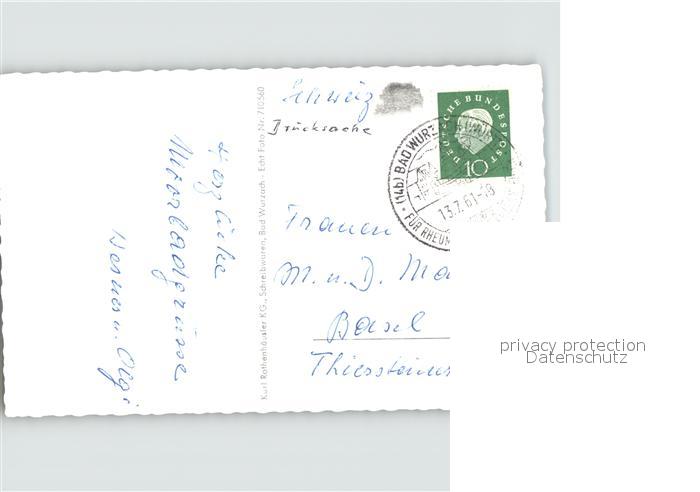 Schweiz
Drucksache
DEUTSCHE BUNDESPOST
10
(14b) BAD WURZ
13.7.61-18
FÜR RHEUM
Herzliche
Moorbadgrüsse
Werner u. Olgi
Kurt Rothenhäusler KG., Schreibwaren, Bad Wurzach - Echt Foto Nr. 710560
Frauen
M. u. D. Ma
Basel
Thiersteiner
privacy protection
Datenschutz